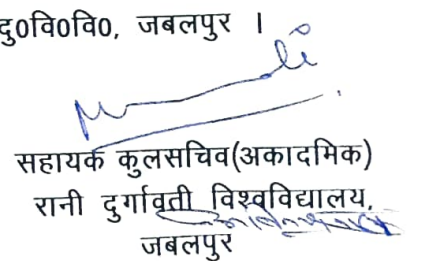 दु0वि0वि0, जबलपुर ।
सहायक कुलसचिव(अकादमिक)
रानी दुर्गावती विश्वविद्यालय,
जबलपुर